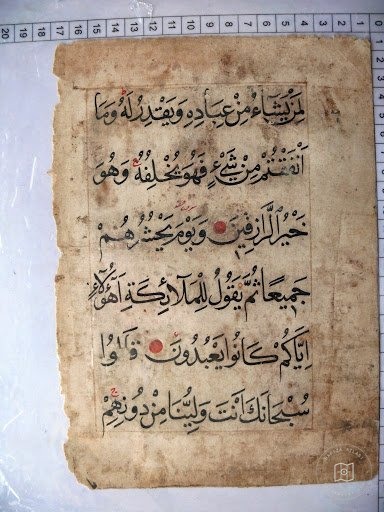 لِمَنْ يَشَاءُ مِنْ عِبَادِهِ وَيَقْدِرُ لَهُ وَمَا
اَنْفَقْتُمْ مِنْ شَيْءٍ فَهُوَ يُخْلِفُهُ وَهُوَ
خَيْرُ الرَّازِقِينَ وَيَوْمَ يَحْشُرُهُمْ
جَمِيعًا ثُمَّ يَقُولُ لِلْمَلَائِكَةِ اَهٰؤُلَاءِ
اِيَّاكُمْ كَانُوا يَعْبُدُونَ قَالُوا
سُبْحَانَكَ اَنْتَ وَلِيُّنَا مِنْ دُونِهِمْ